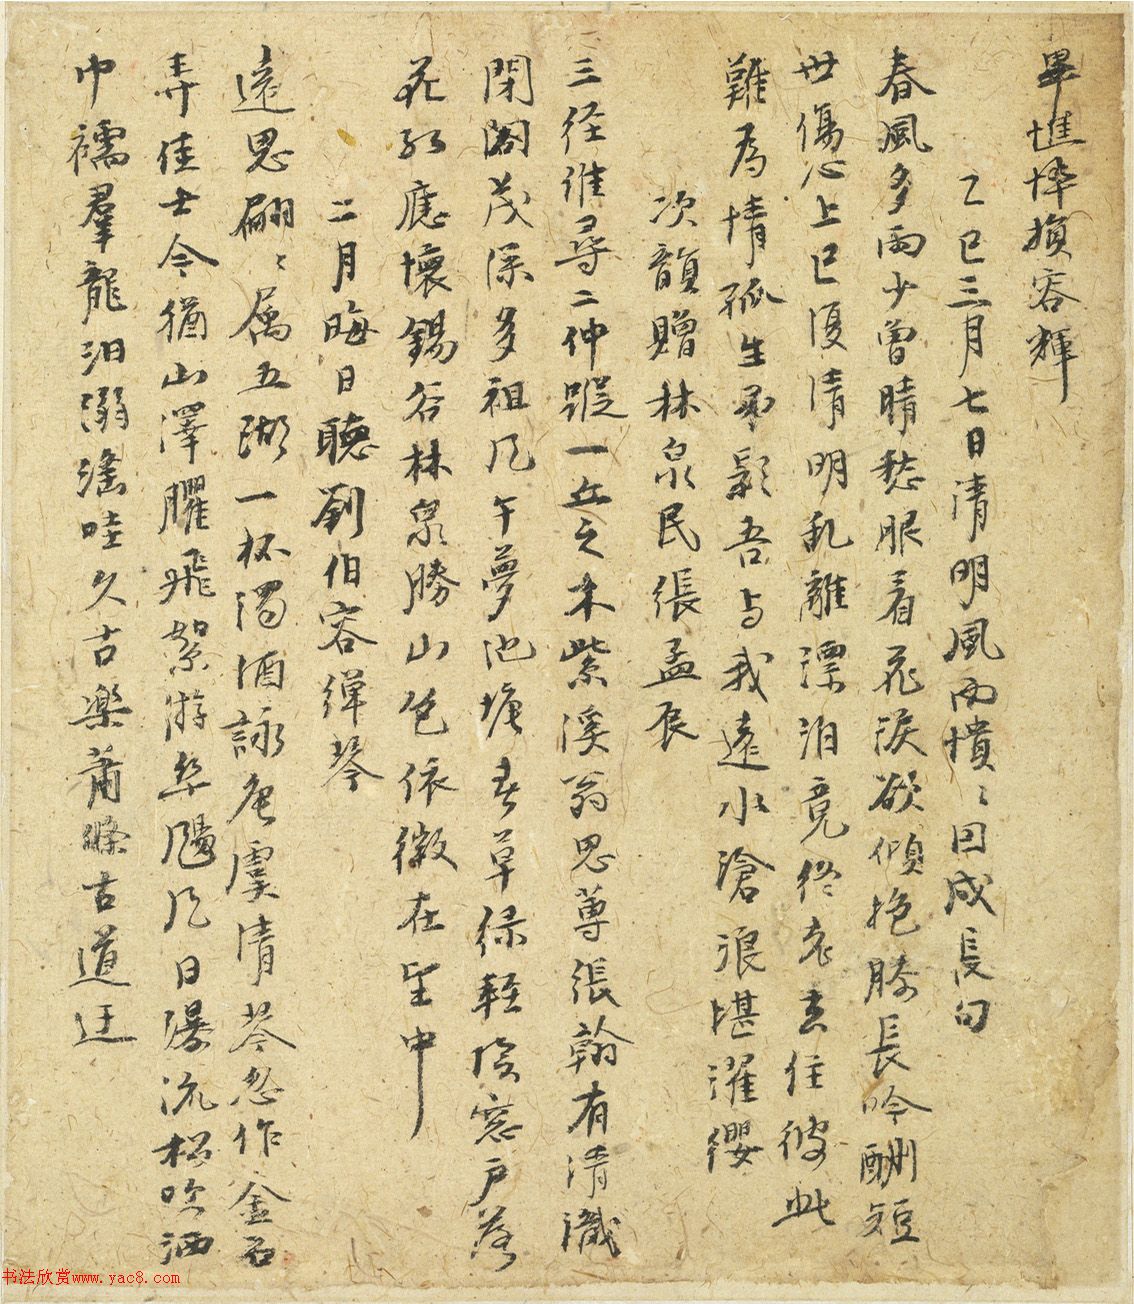 畢憔悴損容輝
乙巳三月七日清明風雨憒〻因成長句
春風多雨少曾晴愁眼看花淚欲傾抱膝長吟酬短
世傷心上巳復清明乱離漂泊竟終老去住彼此
難為情孤生弔影吾与我遠水滄浪堪濯纓
次韻贈林泉民張孟辰
三径誰尋二仲蹤一丘之木紫溪翁思蓴張翰有清識
閉閣茂深多祖风午夢池塘春草綠輕陰窓戶落
花紅應懷錫谷林泉勝山色依微在望中
二月晦日聽劉伯容弹琴
遠思翩〻屬五湖一杯濁酒詠唐虞清琴忽作金石
弄佳士令猶山澤臞飛絮游絲颺风日瀑流松吹洒
巾襦羣龍汩溺滛哇久古樂蕭條古道迂
书法欣赏www.yac8.com